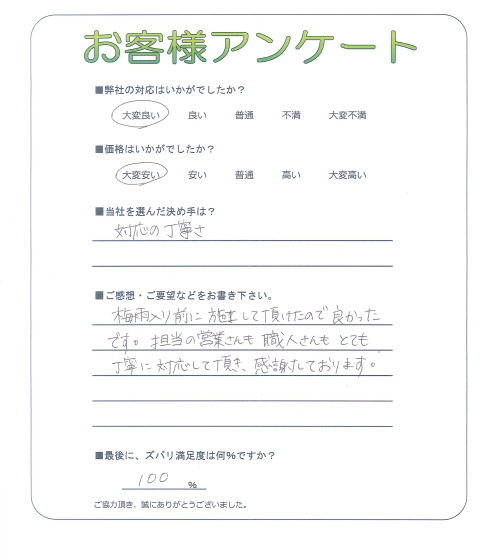 お客様アンケート
■弊社の対応はいかがでしたか？
大変良い 良い 普通 不満 大変不満
■価格はいかがでしたか？
大変安い 安い 普通 高い 大変高い
■当社を選んだ決め手は？
対応の丁寧さ
■ご感想・ご要望などをお書き下さい。
梅雨入り前に施工して頂けたので良かった
です。担当の営業さんも職人さんもとても
丁寧に対応して頂き、感謝しております。
■最後に、ズバリ満足度は何％ですか？
100 ％
ご協力頂き、誠にありがとうございました。